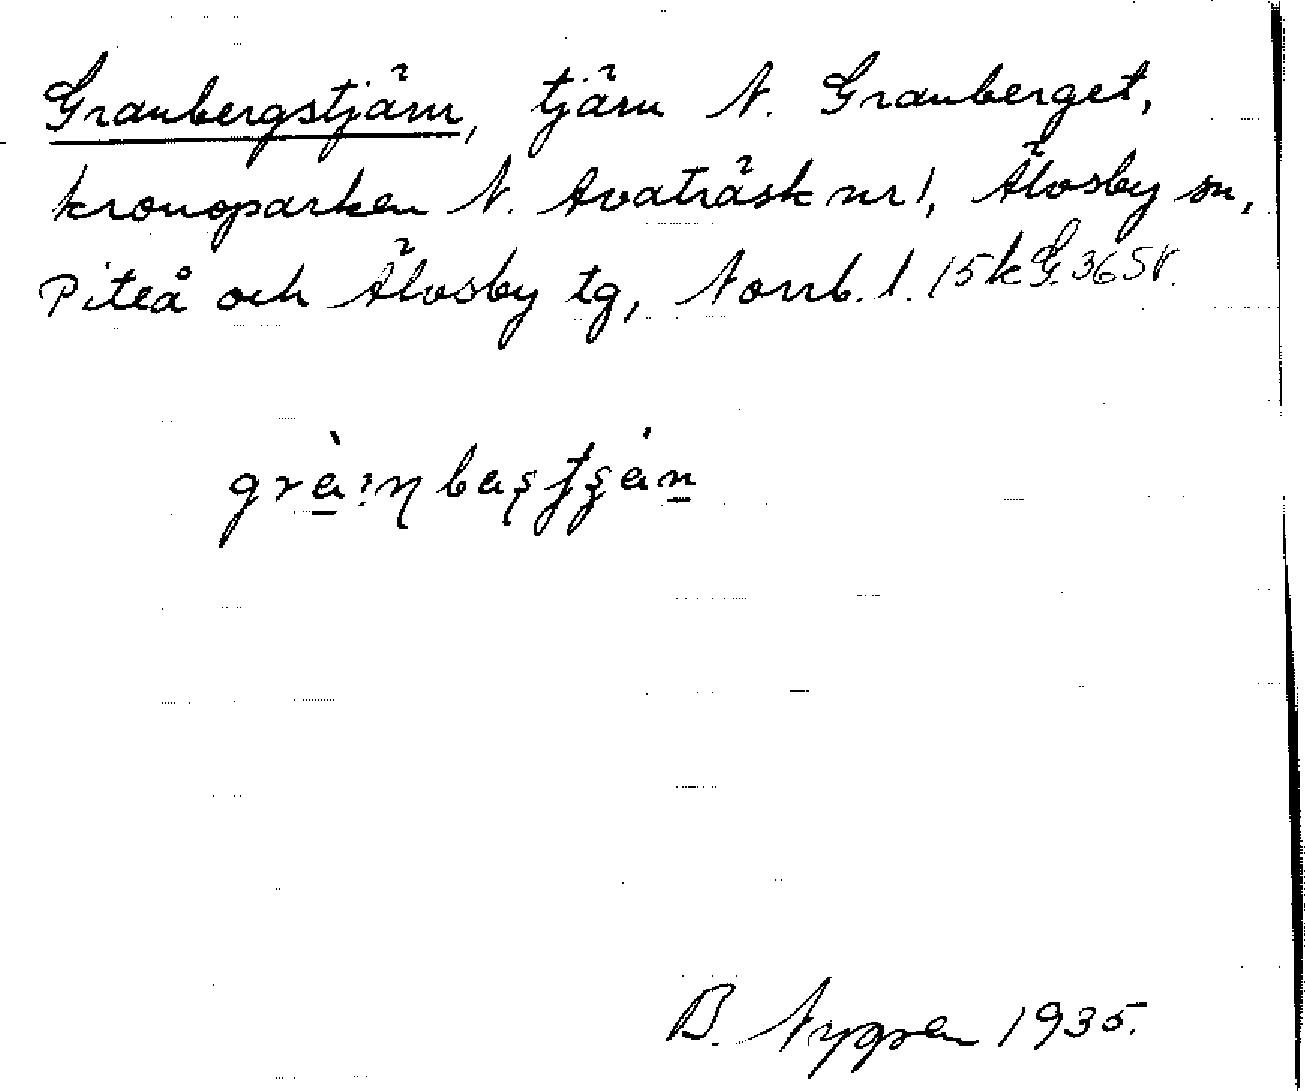 Granbergstjärn, tjärn N. Granberget,
kronoparken N. Avaträsk nr 1, Älvsby sn,
Piteå och Älvsby tg, Norrb. l. 15k G. 3650.
B. Nygren 1935.